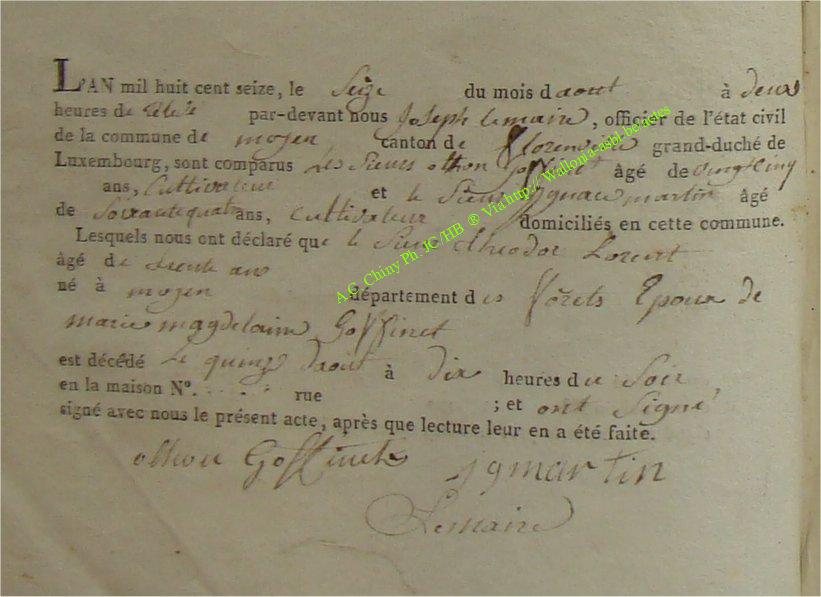 L'AN mil huit cent seize, le Seize du mois d'aout à deux
heures de par-devant nous Joseph Lemaire, officier de l'état civil
de la commune de moyen canton de florenville grand-duché de
Luxembourg, sont comparus Les Sieurs othon Goffinet âgé de vingt cinq
ans, Cultivateur et le Sieur Ignace martin âgé
de Soixante quatre ans, Cultivateur domiciliés en cette commune.
Lesquels nous ont déclaré que le Sieur theodor Lorent
âgé de trente ans
né à moyen département des forêts Epoux de
marie magdelaine Goffinet
est décédé Le quinze d'aout à dix heures du Soir
en la maison N°. rue ; et ont Signé
signé avec nous le présent acte, après que lecture leur en a été faite.
othon Goffinet jgmartin
Lemaire
A.G. Chiny Ph. JC/HB ® Via http://Wallonia-asbl-be-